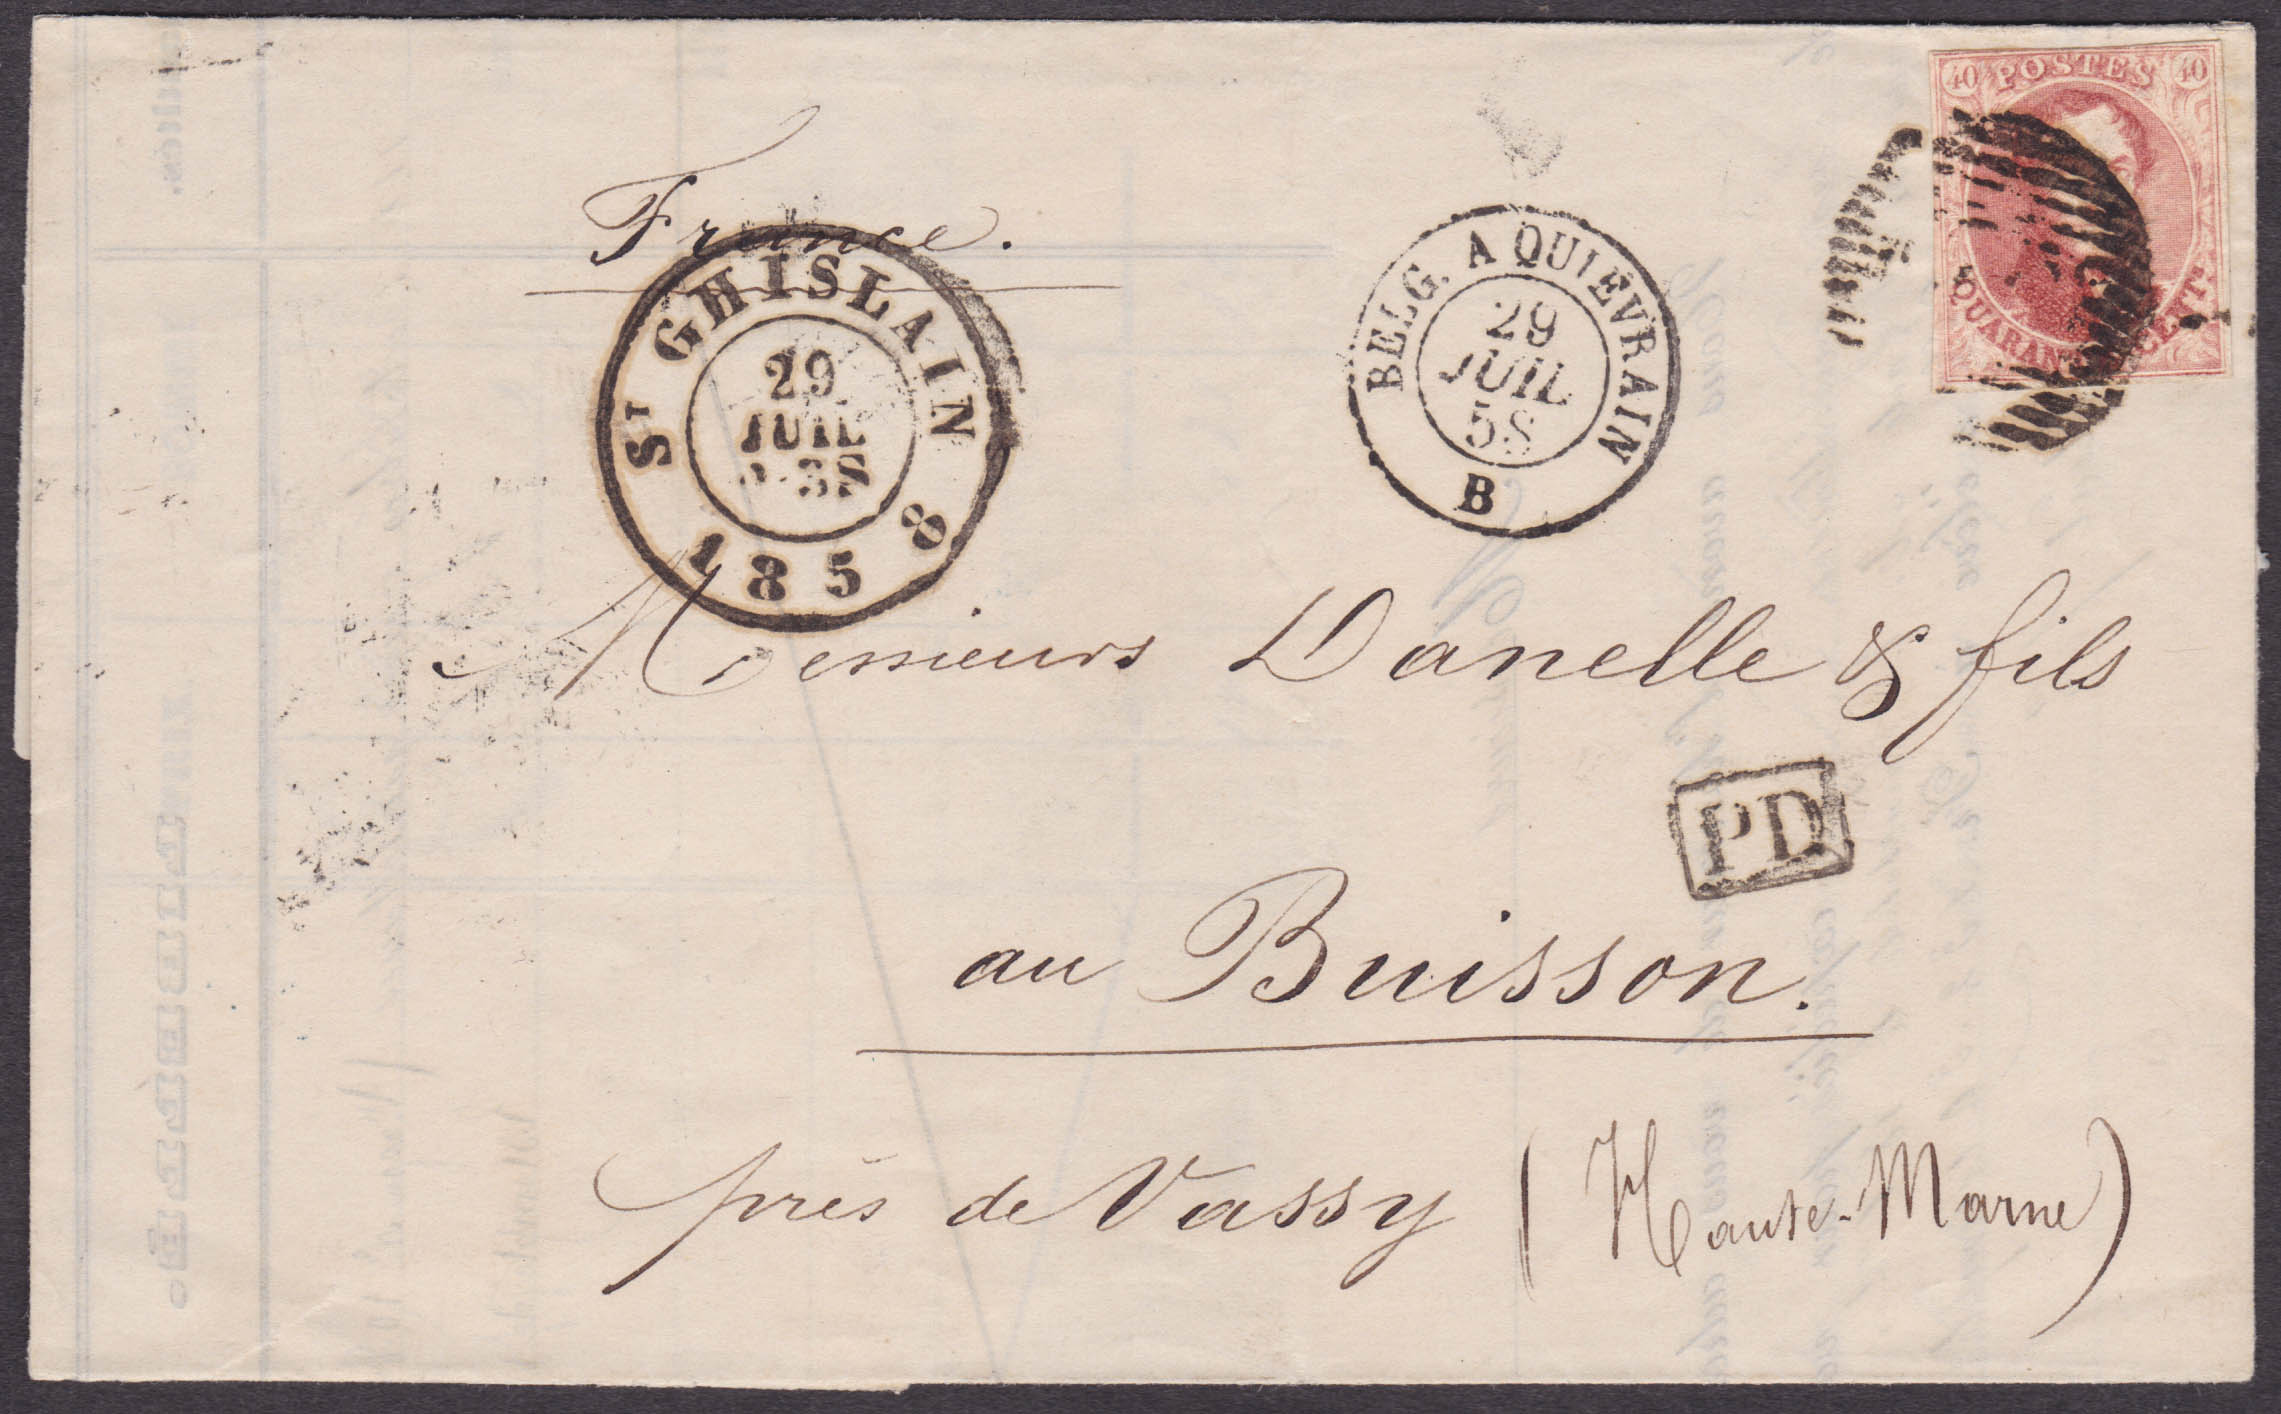 40 POSTES 40
QUARANTE CENT.
France.
ST GHISLAIN
29
JUIL
1858
BELG. A QUIEVRAIN
29
JUIL
58
B
Messieurs Danelle & fils
PD
au Buisson.
près de Vassy (Haute-Marne)